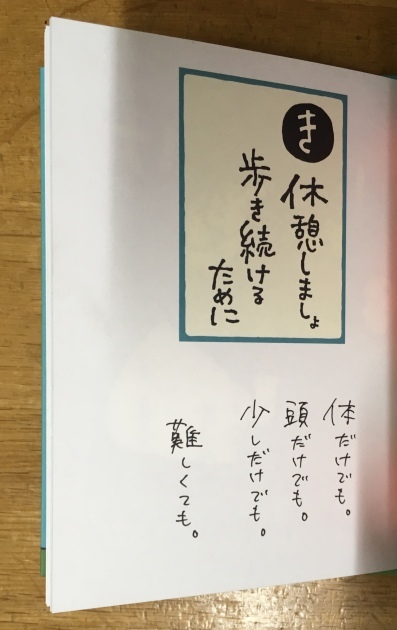 き
休憩しましょ
歩き続ける
ために
体だけでも。
頭だけでも。
少しだけでも。
難しくても。